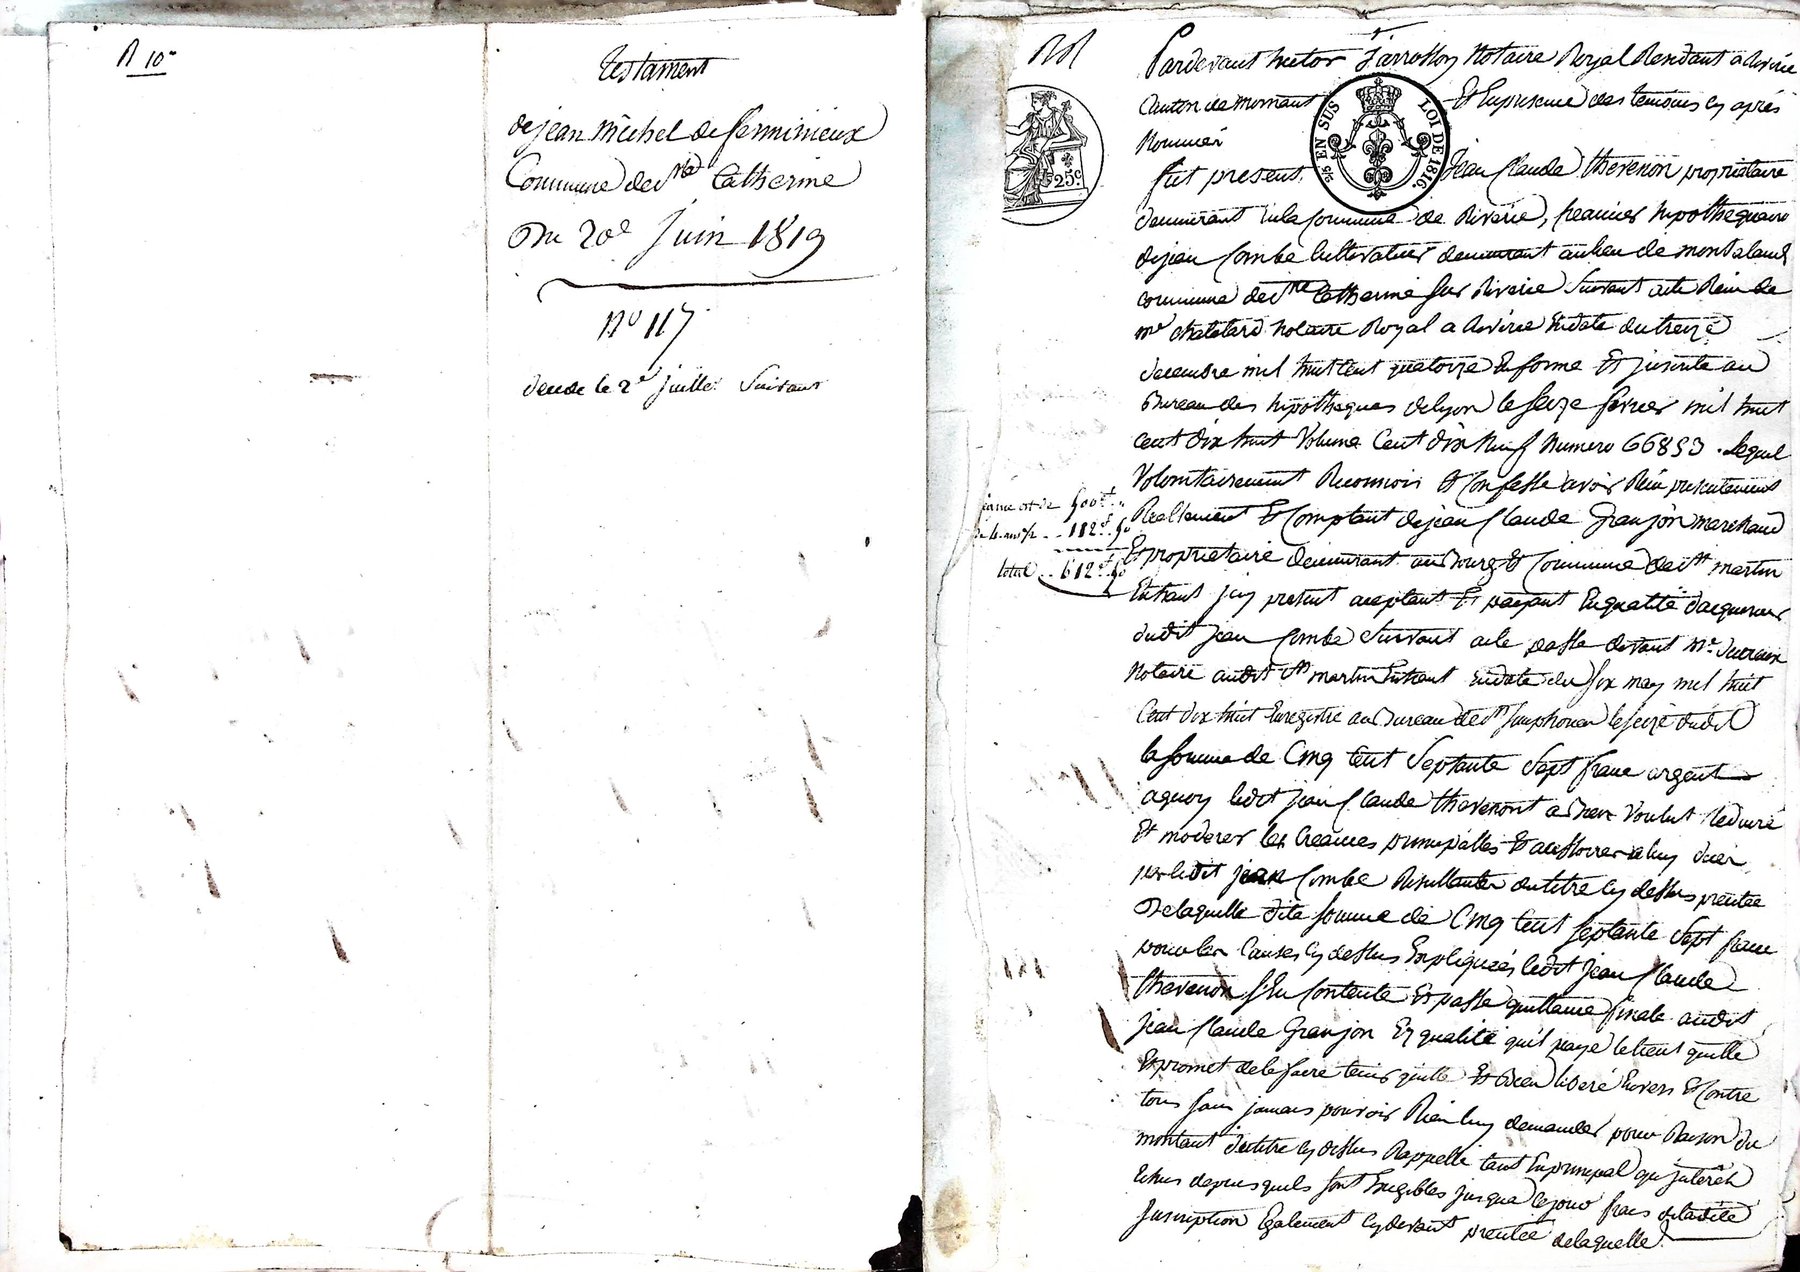 R 10
Testament
de jean Michel de ferminieux
Commune de Ste Catherine
Du 20e Juin 1819
No 117
décédé le 2e juillet Suivant
Pardevant hector Notaire Royal Résidant a Riverie
Canton de mornant Et En presence des temoins cy après
Nommés
25c
25c EN SUS LOI DE 1816.
fut present Jean Claude thevenon propriétaire
demeurant en la Commune de Riverie, creancier hipothequaire
de jean Combe Cultivateur demeurant au lieu de
commune de Ste Catherine sur Riverie Suivant acte Recu de
me chatelard notaire Royal a Riverie En date du treize
decembre mil huit cent quatorze En forme Et inscrite au
Bureau des hipotheques de lyon le seize fevrier mil huit
cent dix huit Volume Cent dix Neuf Numero 66853. lequel
Volontairement Reconnoit Et Confesse avoir Recu presentement
Réellement Et Comptant de jean Claude Granjon marchand
Et proprietaire demeurant au Bourg Et Commune de St martin
En haut icy present aceptant Et payant En qualité d'acquereur
dudit jean Combe Suivant acte passé devant Me
Notaire audit St martin En haut En date du six may mil huit
Cent dix huit Enregistré au Bureau de St simphorien le seize dudit
la somme de Cinq Cent Septante Sept franc argent
a quoy ledit jean Claude thevenont a Bien Voulut Reduire
Et moderer les Creances principalles Et accessoires a luy dues
par ledit jean Combe Resultantes du titre cy dessus
De laquelle dite somme de Cinq Cent Septante Sept franc
pour les Causes cy dessus Expliquées ledit jean Claude
thevenon s'En Contente Et passe quittance finale audit
jean Claude Granjon En qualité qu'il paye le tient quitte
Et promet de le faire tenir quitte Et Bien liberé Envers Et Contre
tous sans jamais pouvoir Rien luy demander pour Raison du
montant du titre cy dessus Rappellé tant En principal qu'intérêts
Echus depuis quils sont Exigibles jusqua ce jour frais
Inscription Egalement cy devant de laquelle
créance est de 500f
112f 50
total 612f 50